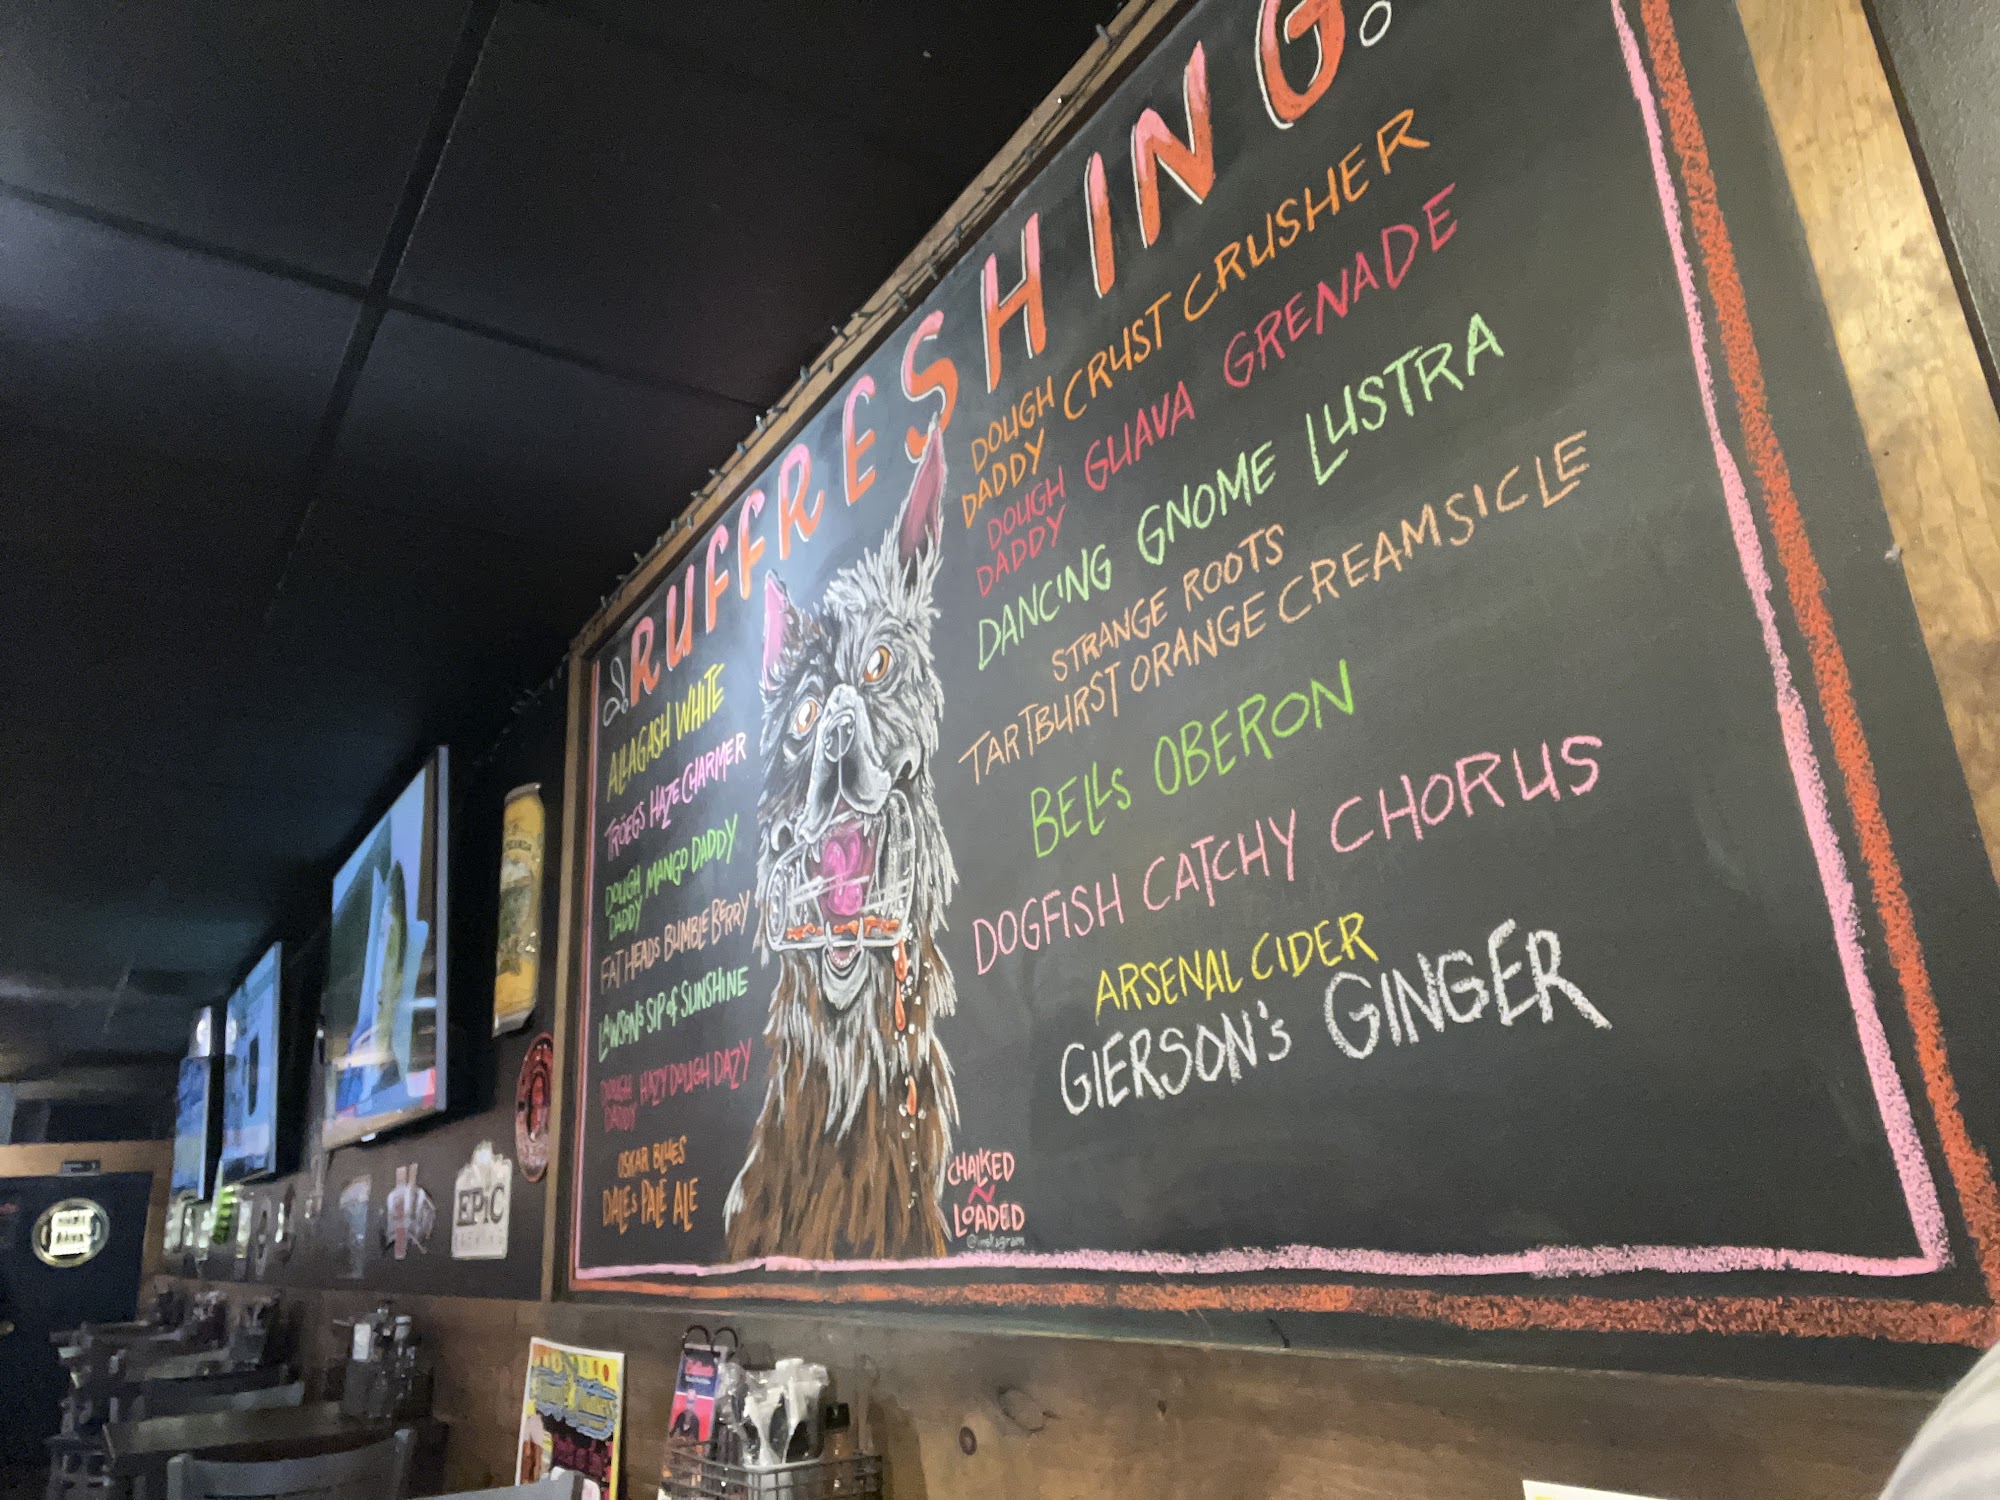 RUFFRESHING.
ALLAGASH WHITE
TRÖEGS HAZE CHARMER
DOUGH DADDY MANGO DADDY
FAT HEADS BUMBLE BERRY
LAWSON'S SIP of SUNSHINE
DOUGH DADDY HAZY DOUGH DAZY
OSKAR BLUES
DALES PALE ALE
DOUGH DADDY CRUST CRUSHER
DOUGH DADDY GUAVA GRENADE
DANCING GNOME LUSTRA
STRANGE ROOTS
TARTBURST ORANGE CREAMSICLE
BELLS OBERON
DOGFISH CATCHY CHORUS
ARSENAL CIDER
GIERSON'S GINGER
CHALKED
~
LOADED
@instagram
EPIC
BREWING